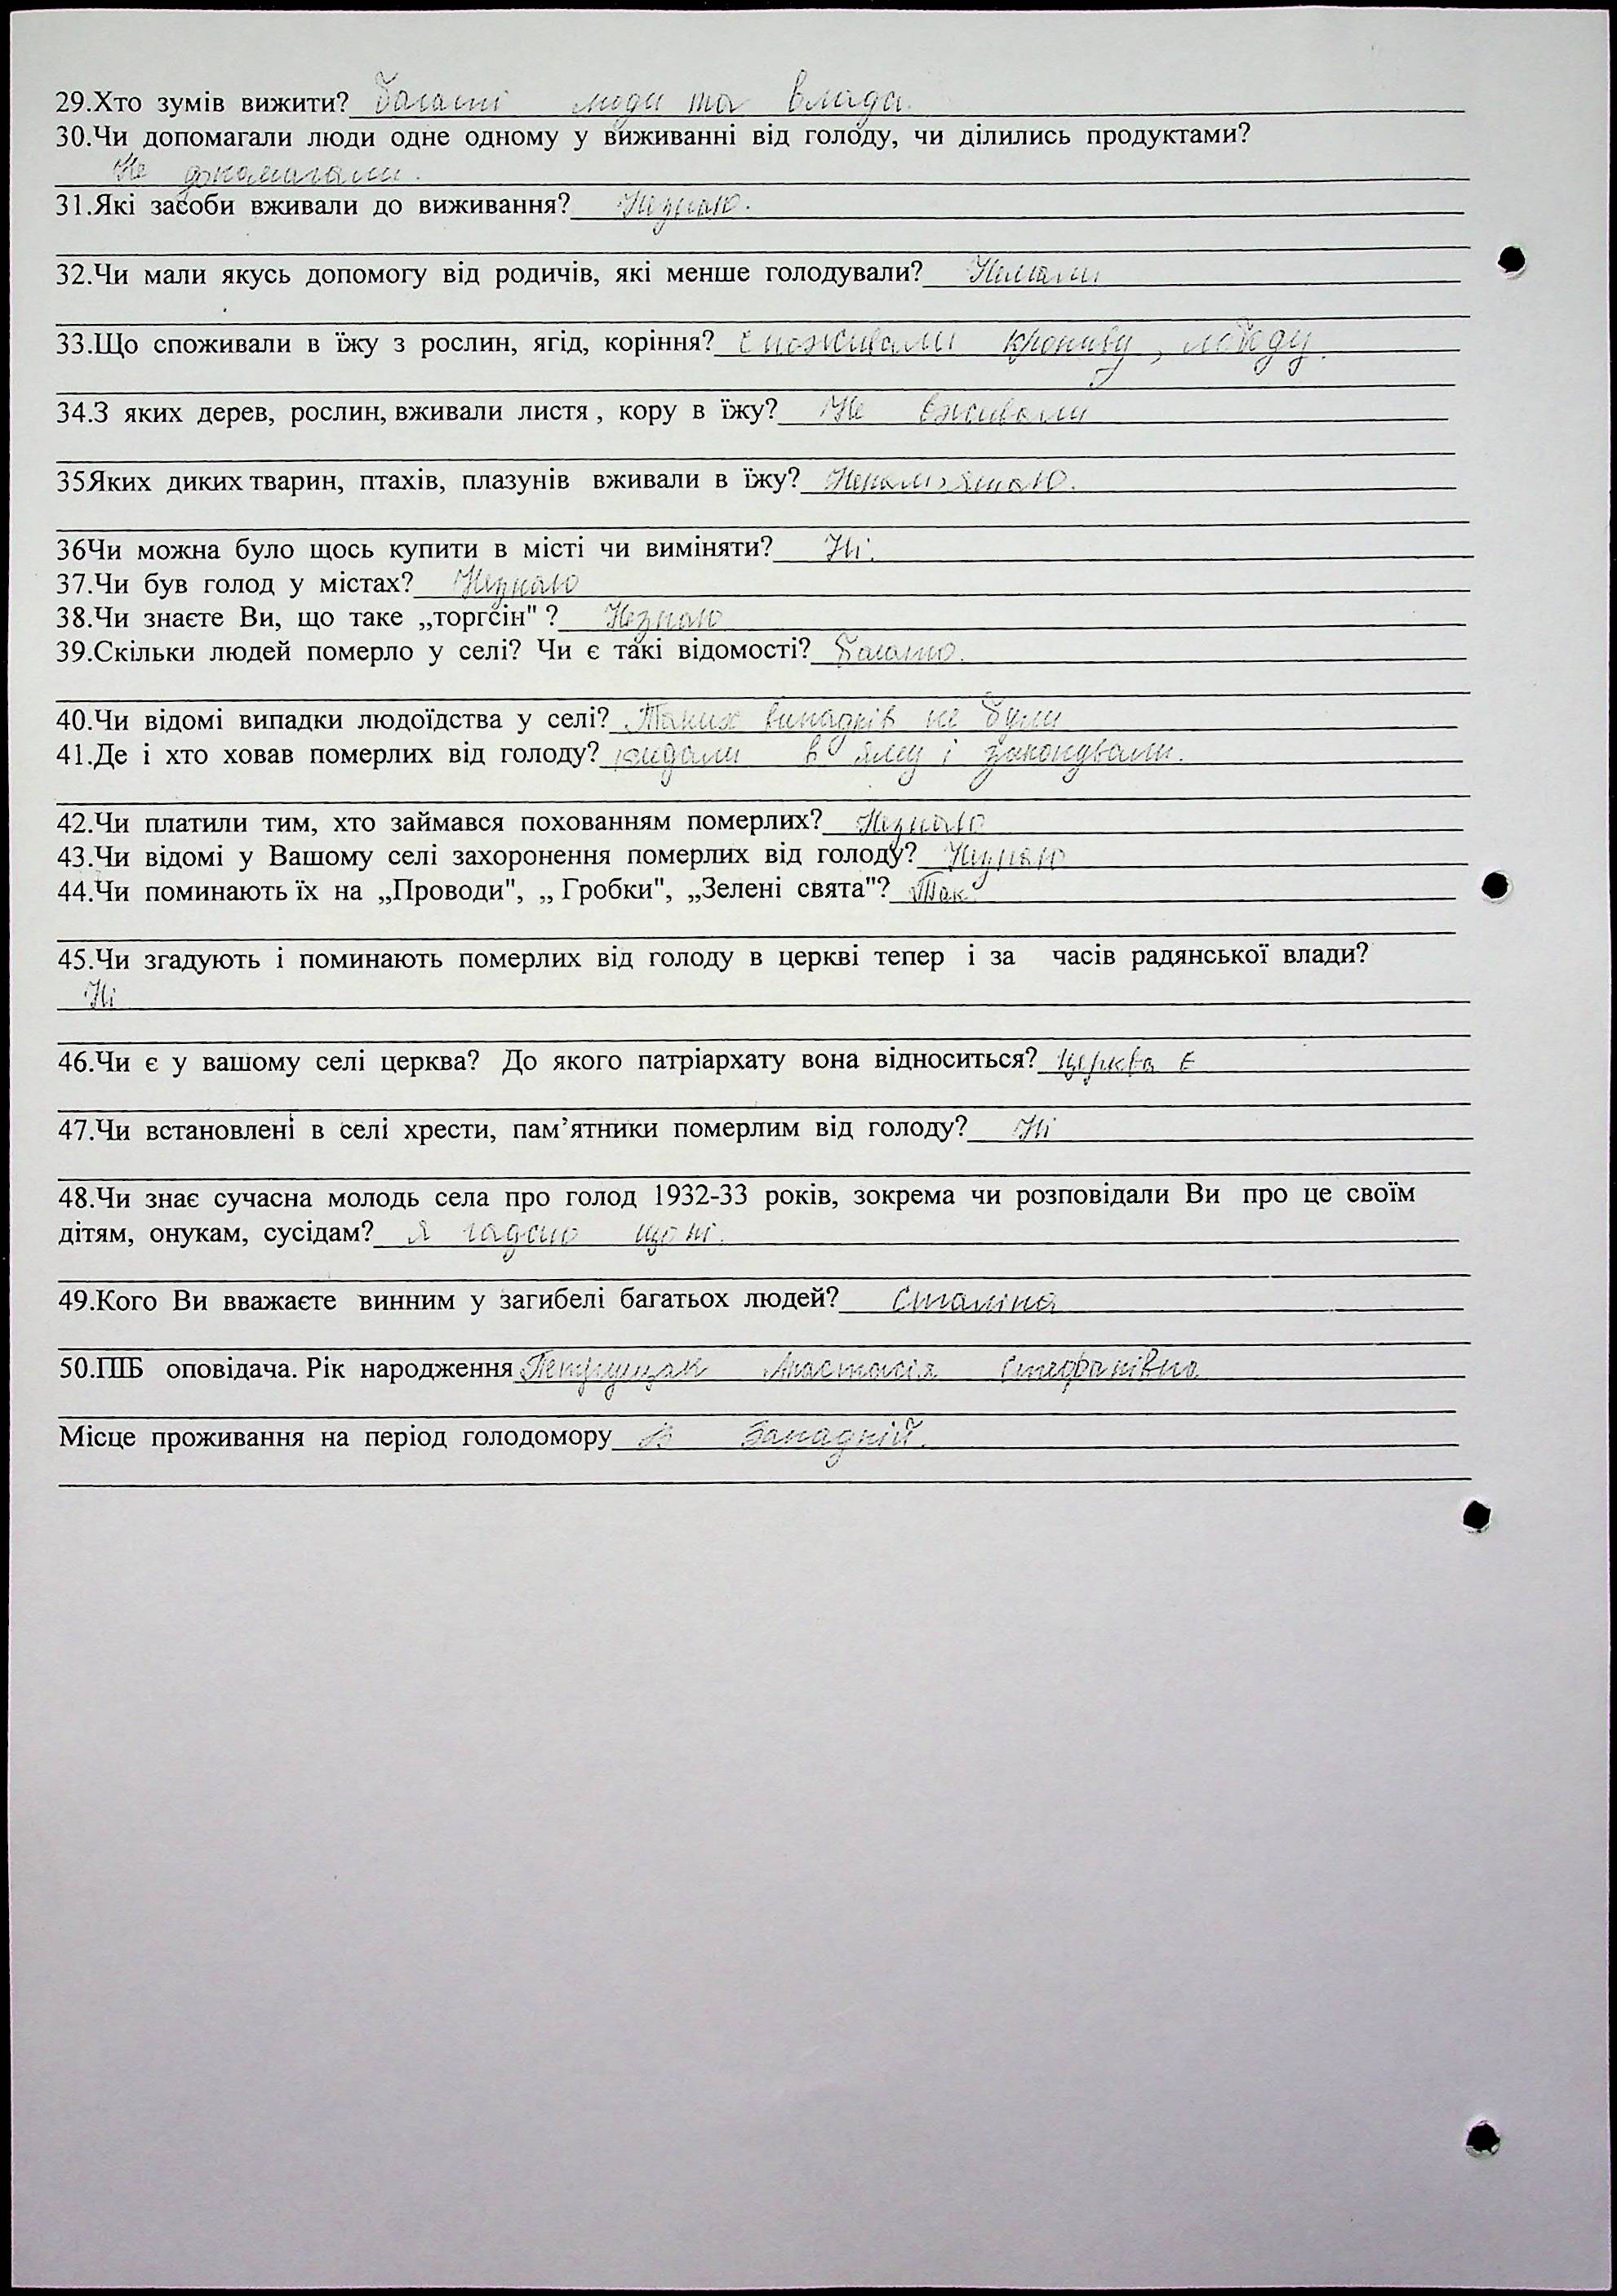 29.Хто зумів вижити? Багаті люди та влада.
30.Чи допомагали люди одне одному у виживанні від голоду, чи ділились продуктами?
Не допомагали.
31.Які засоби вживали до виживання? Незнаю.
32.Чи мали якусь допомогу від родичів, які менше голодували? Немали
33.Що споживали в їжу з рослин, ягід, коріння? споживали кропиву, лободу.
34.З яких дерев, рослин, вживали листя , кору в їжу? Не вживали
35Яких диких тварин, птахів, плазунів вживали в їжу? Непам'ятаю.
36Чи можна було щось купити в місті чи виміняти? Ні.
37.Чи був голод у містах? Незнаю
38.Чи знаєте Ви, що таке „торгсін" ? Незнаю
39.Скільки людей померло у селі? Чи є такі відомості? Багато.
40.Чи відомі випадки людоїдства у селі? Таких випадків не були
41.Де і хто ховав померлих від голоду? кидали в яму і закопували.
42.Чи платили тим, хто займався похованням померлих? Незнаю
43.Чи відомі у Вашому селі захоронення померлих від голоду? Незнаю
44.Чи поминають їх на „Проводи", „ Гробки", „Зелені свята"? Так.
45.Чи згадують і поминають померлих від голоду в церкві тепер і за часів радянської влади?
Ні
46.Чи є у вашому селі церква? До якого патріархату вона відноситься? Церква є
47.Чи встановлені в селі хрести, пам’ятники померлим від голоду? Ні
48.Чи знає сучасна молодь села про голод 1932-33 років, зокрема чи розповідали Ви про це своїм
дітям, онукам, сусідам? Я гадаю що ні.
49.Кого Ви вважаєте винним у загибелі багатьох людей? Сталіна
50.ПІБ оповідача. Рік народження Анастасія Стефанівна
Місце проживання на період голодомору В Западній.